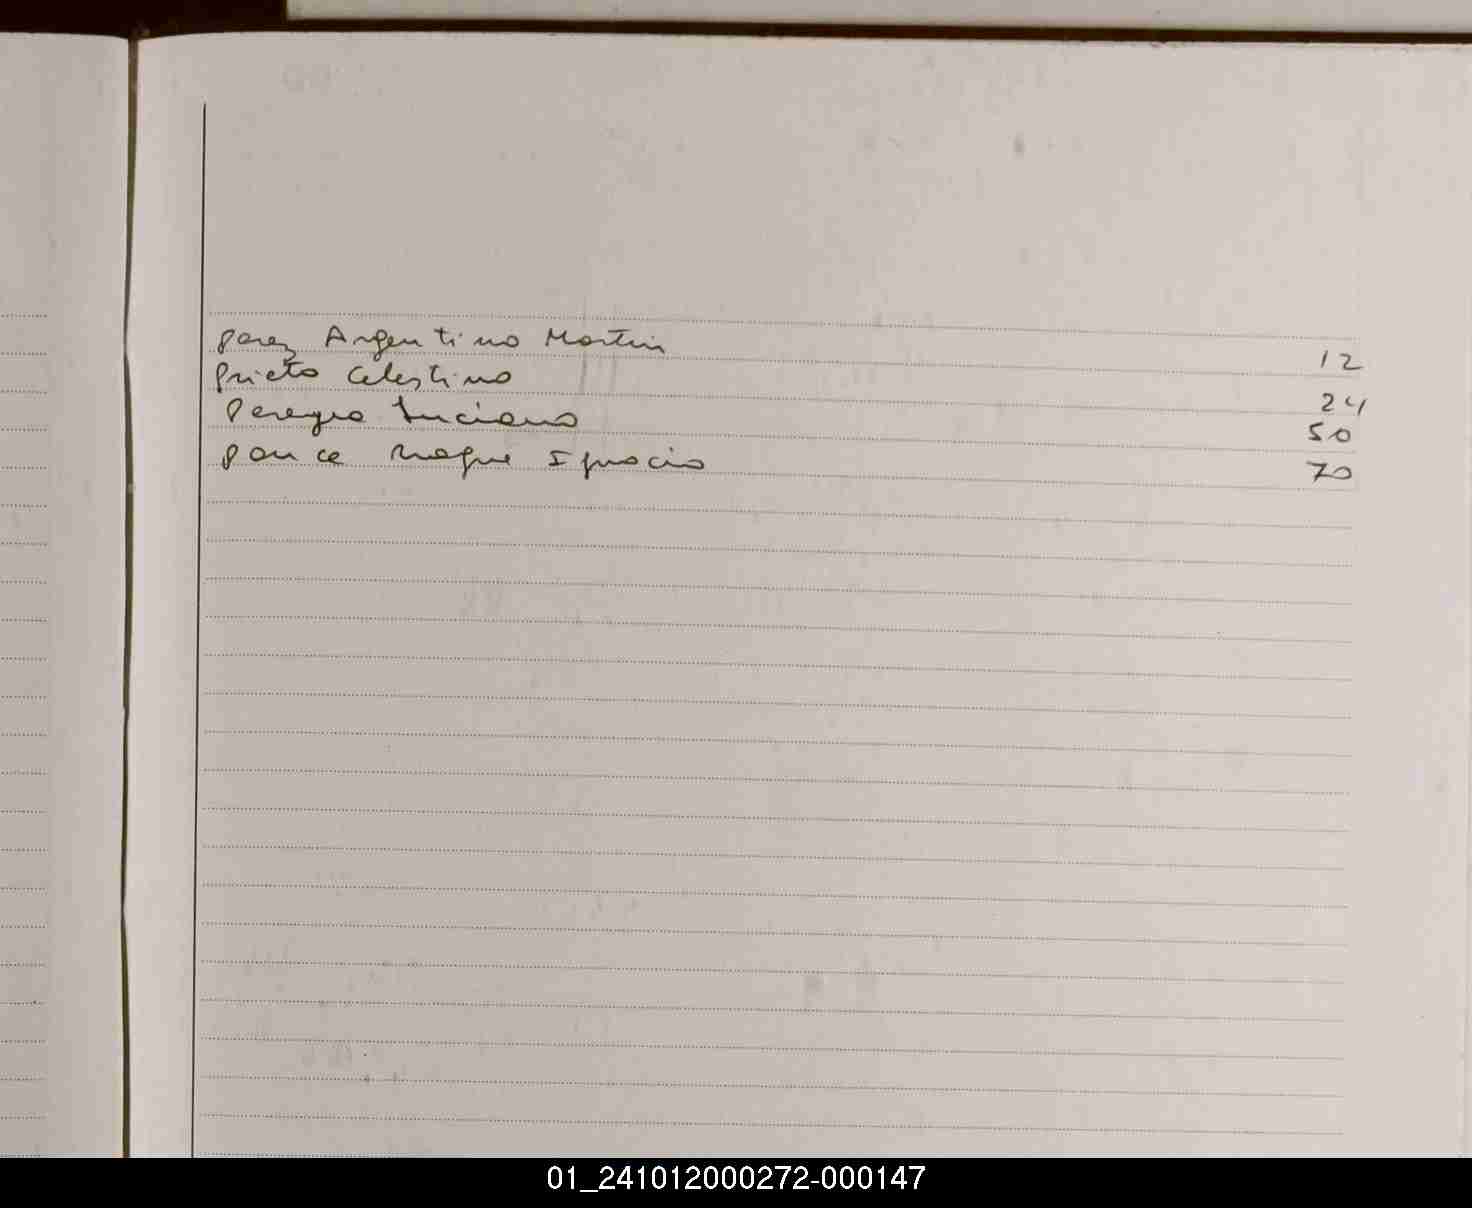 Perez Argentino Martin 12
Prieto Celestino 24
Pereyra Luciano 50
Ponce Roque Ignacio 70
01_241012000272-000147